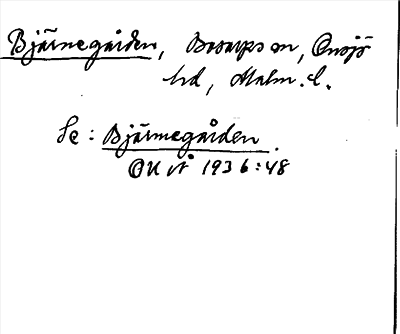 Bjärnegården, Bosarps sn, Onsjö
hd, Malm. l.
Se: Bjärnegården.
OUÅ 1936:48